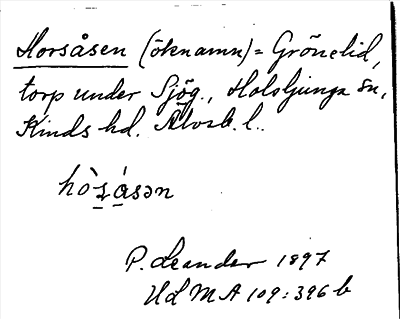 Horsåsen (öknamn) = Grönelid,
torp under Sjög., Holsljunga sn,
Kinds hd. Älvsb. l..
hò̱ṣá̱sən
P. Leander 1897
ULMA 109:396 b